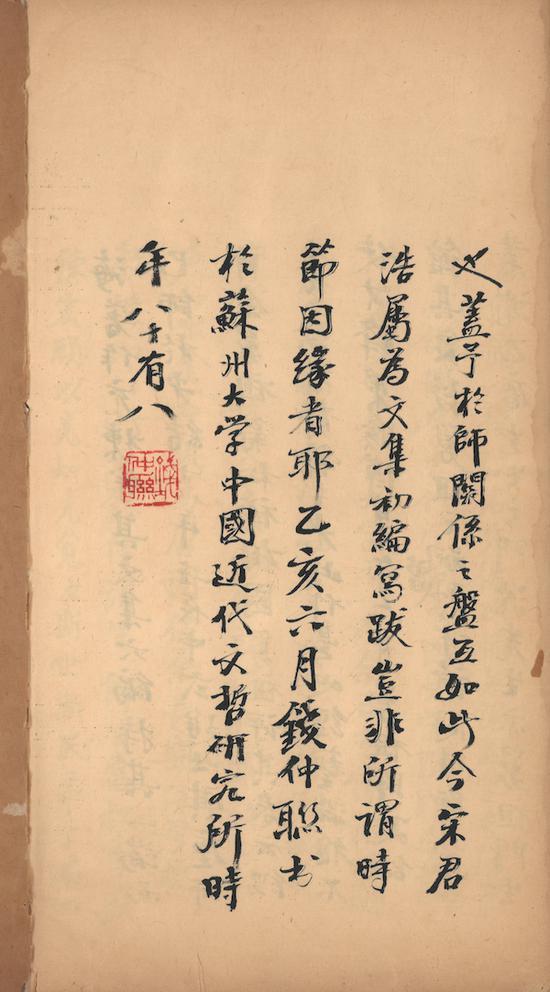 也蓋予於師關係之盤互如此今宋君
浩屬為文集初編寫跋豈非所謂時
節因緣者耶乙亥六月錢仲聯书
於蘇州大学中國近代文哲研究所時
年八十有八
錢仲聯